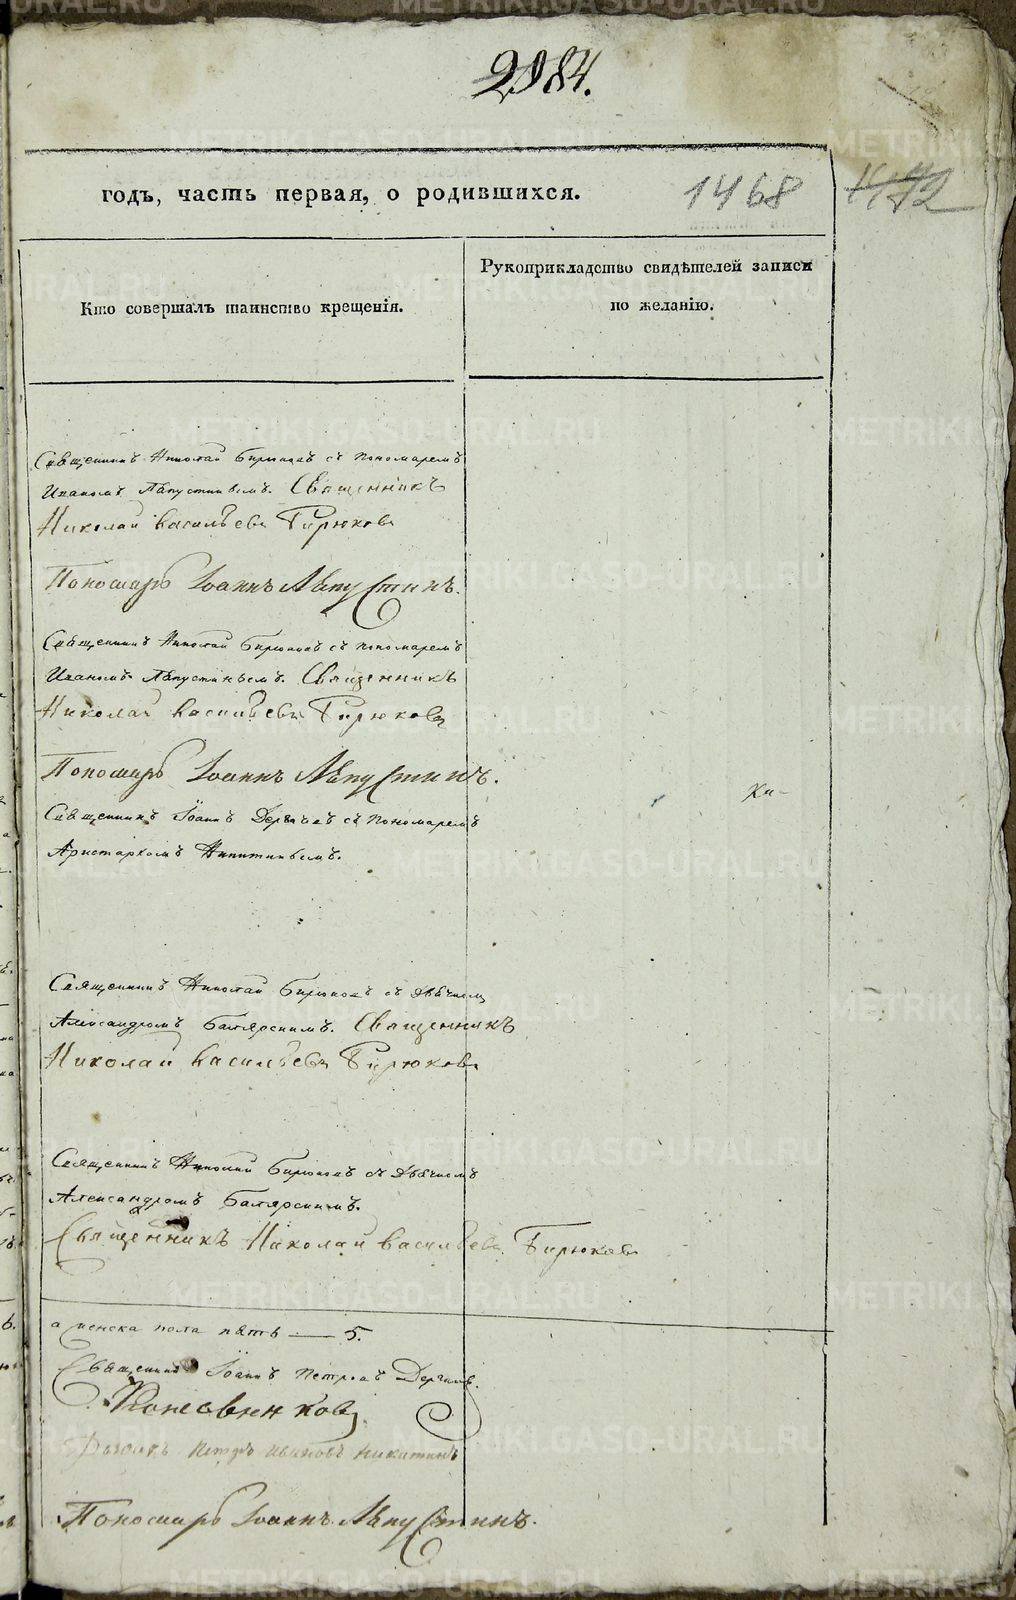 2984.
годъ, часть первая, о родившихся.
1468
1472
Кто совершалъ таинство крещенія.
Рукоприкладство свидѣтелей записи
по желанію.
Священникъ Николай Бирюковъ съ пономаремъ
Иваномъ Лѣпустинымъ. Священникъ
Николай Васильевъ Бирюковъ
Пономарь Іоаннъ Лѣпустинъ.
Священникъ Николай Бирюковъ съ пономаремъ
Иваномъ Лѣпустинымъ. Священникъ
Николай Васильевъ Бирюковъ
Пономарь Іоаннъ Лѣпустинъ.
Священникъ Іоаннъ съ пономаремъ
Аристархомъ Никитинымъ.
Священникъ Николай Бирюковъ съ дьячкомъ
Александромъ Священникъ
Николай Васильевъ Бирюковъ
Священникъ Николай Бирюковъ съ дьячкомъ
Александромъ
Священникъ Николай Васильевъ Бирюковъ
а женска пола пять — 5.
Священникъ Іоаннъ Петровъ
Петръ Ивановъ Никитинъ
Пономарь Іоаннъ Лѣпустинъ.
METRIKI.GASO-URAL.RU